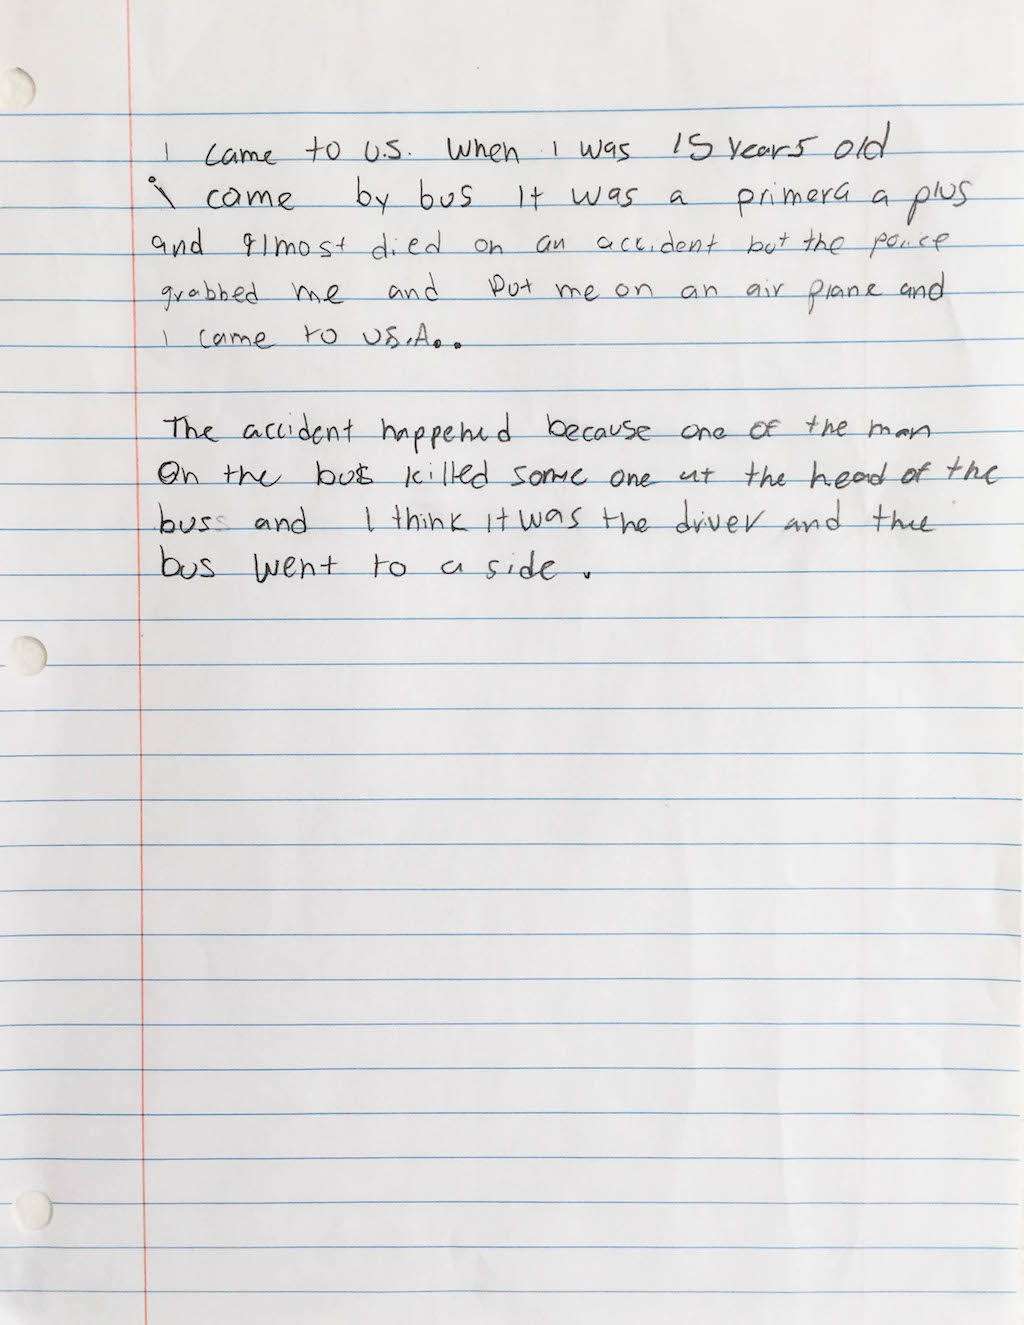 I came to U.S. when I was 15 years old
i came by bus It was a primera a plus
and almost died on an accident but the police
grabbed me and put me on an air plane and
I came to US.A..
The accident happened because one of the man
On the bus killed some one at the head of the
buss and I think it was the driver and the
bus went to a side.